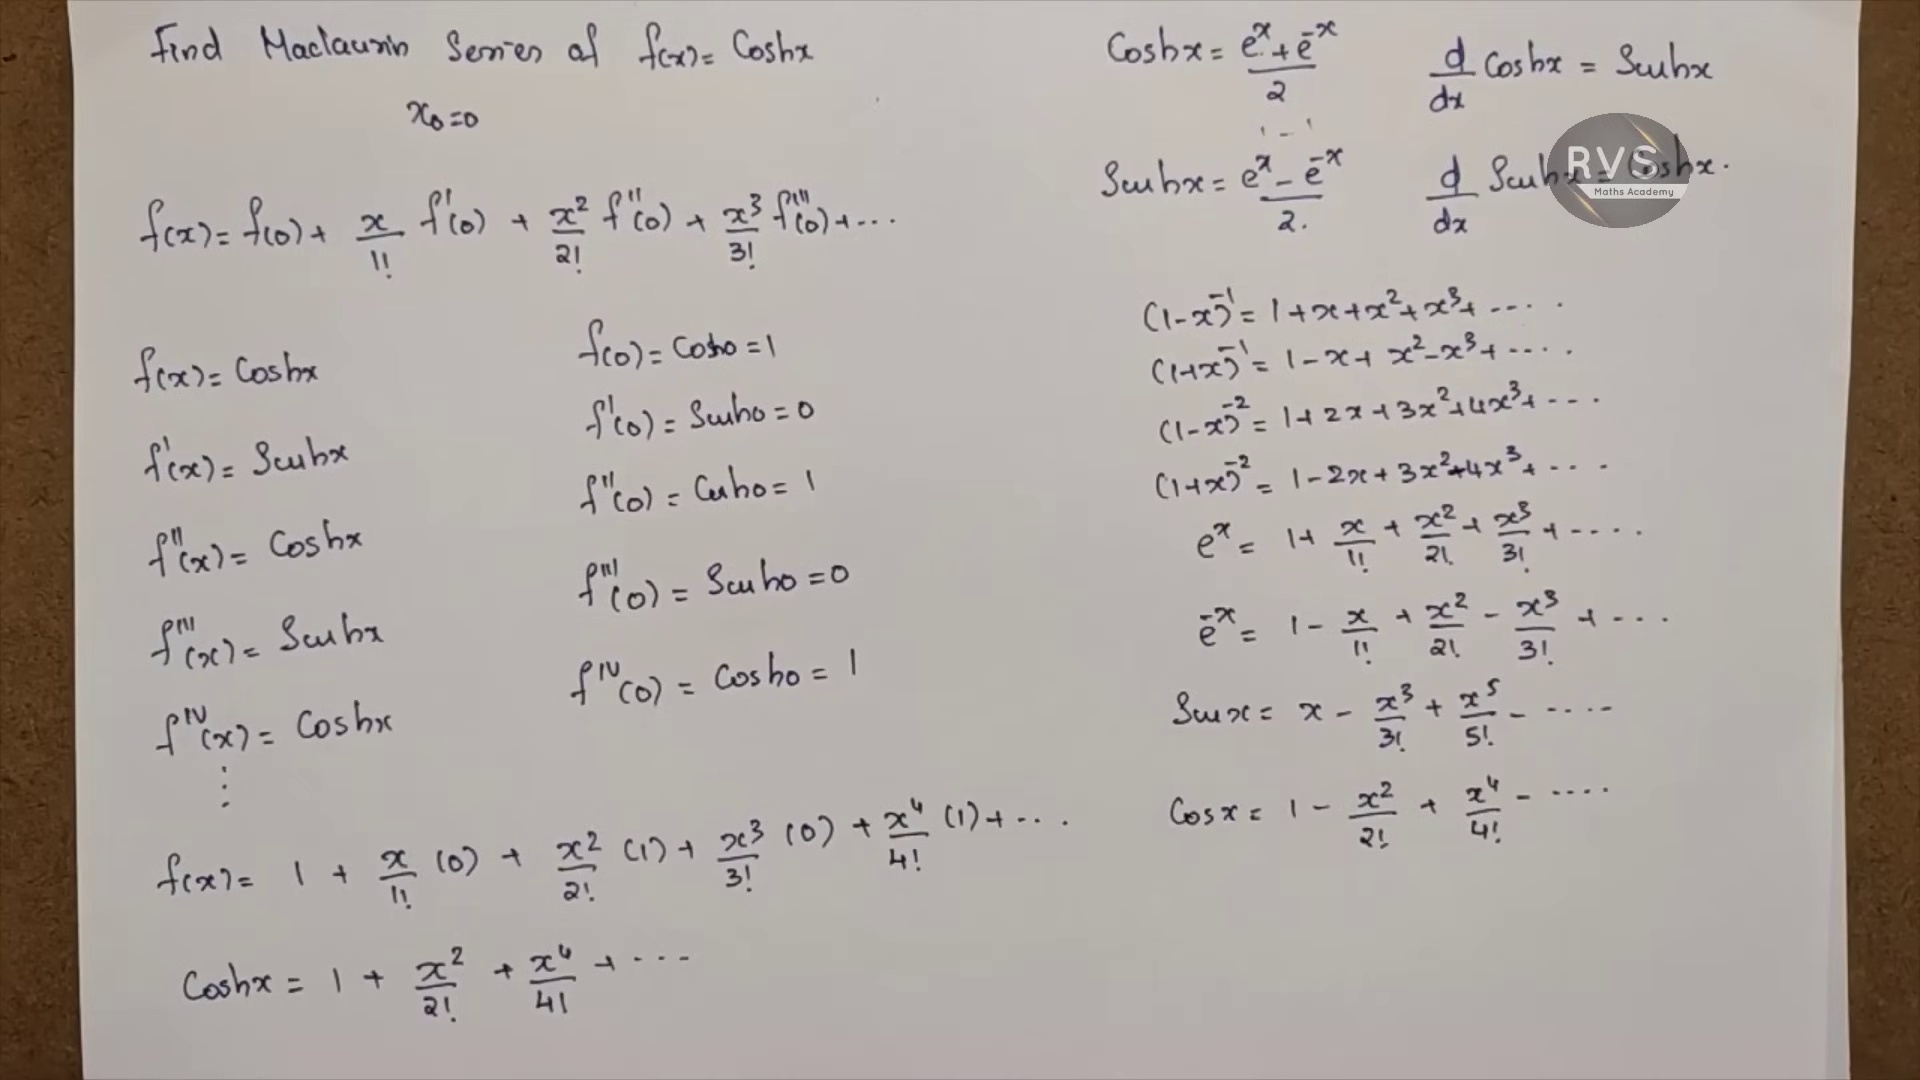 Find Maclaurin Series of f(x) = Coshx
x₀=0
f(x) = f(0) + x/1! f'(0) + x²/2! f''(0) + x³/3! f'''(0) + ...
f(x) = Coshx
f'(x) = Sinhx
f''(x) = Coshx
f'''(x) = Sinhx
f^IV(x) = Coshx
⋮
f(0) = Cosh0 = 1
f'(0) = Sinh0 = 0
f''(0) = Cosh0 = 1
f'''(0) = Sinh0 = 0
f^IV(0) = Cosh0 = 1
f(x) = 1 + x/1! (0) + x²/2! (1) + x³/3! (0) + x⁴/4! (1) + ...
Coshx = 1 + x²/2! + x⁴/4! + ...
Coshx = (e^x + e^-x)/2
d/dx Coshx = Sinhx
Sinhx = (e^x - e^-x)/2.
d/dx Sinhx = Coshx.
RVS
Maths Academy
(1-x)^-1 = 1+x+x²+x³+ ....
(1+x)^-1 = 1-x+x²-x³+ ....
(1-x)^-2 = 1+2x+3x²+4x³+ ...
(1+x)^-2 = 1-2x+3x²-4x³+ ...
e^x = 1+ x/1! + x²/2! + x³/3! + ....
e^-x = 1 - x/1! + x²/2! - x³/3! + ...
Sinx = x - x³/3! + x⁵/5! - ....
Cosx = 1 - x²/2! + x⁴/4! - ....